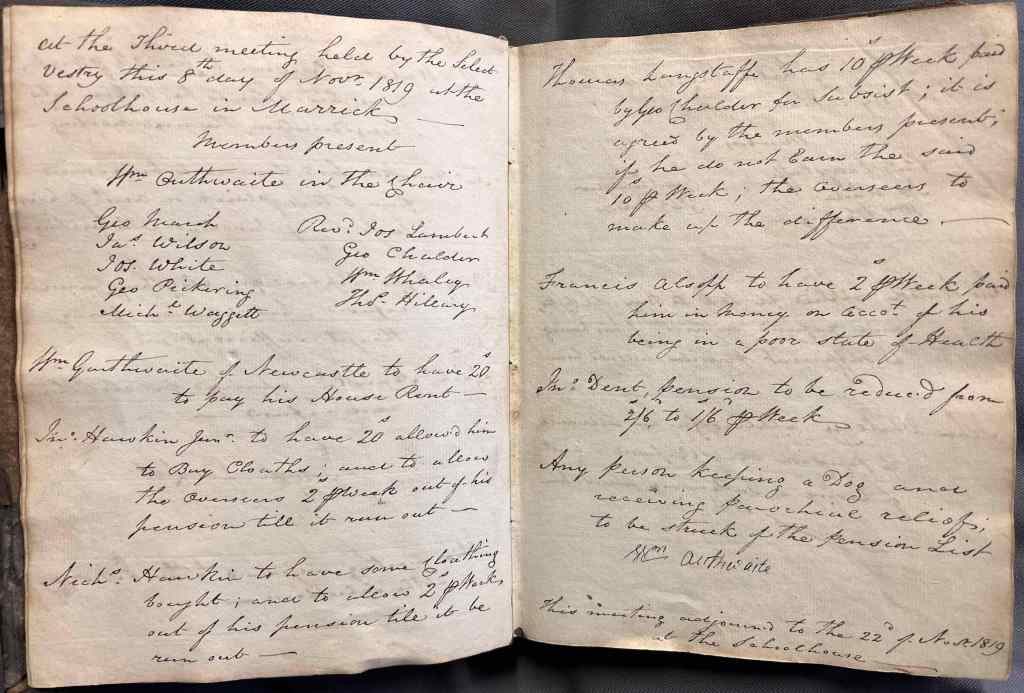 at the Third meeting held by the Select
Vestry this 8th day of Novr. 1819 at the
Schoolhouse in Marrick —
Members present
Wm Outhwaite in the Chair
Geo March
Jas. Wilson
Jos. White
Geo Pickering
Michl. Waggett
Revd. Jos Lambert
Geo Chalder
Wm Whaley
Thos. Hillary
Wm Garthwaite of Newcastle to have 20s
to pay his House Rent —
Jno. Hawkin Junr. to have 20s allow'd him
to Buy Cloaths; and to allow
the Overseers 2s ⅌ Week out of his
pension till it run out —
Nichs. Hawkin to have some Cloathing
bought; and to allow 2s ⅌ Week
out of his pension till it be
run out —
Thomas Langstaffe has 10s ⅌ Week paid
by Geo Chalder for Subsist; it is
agreed by the members present;
if he do not Earn the said
10s ⅌ Week; the Overseers to
make up the difference —
Francis Alsop to have 2s ⅌ Week paid
him in Money on Acct. of his
being in a poor state of Health
Jno. Dent, pension to be reduc'd from
2/6 to 1/6 ⅌ Week
Any person keeping a Dog and
receiving parochial relief;
to be struck of the Pension List
Wm Outhwaite
This meeting adjourn'd to the 22d of Novr. 1819
at the Schoolhouse —